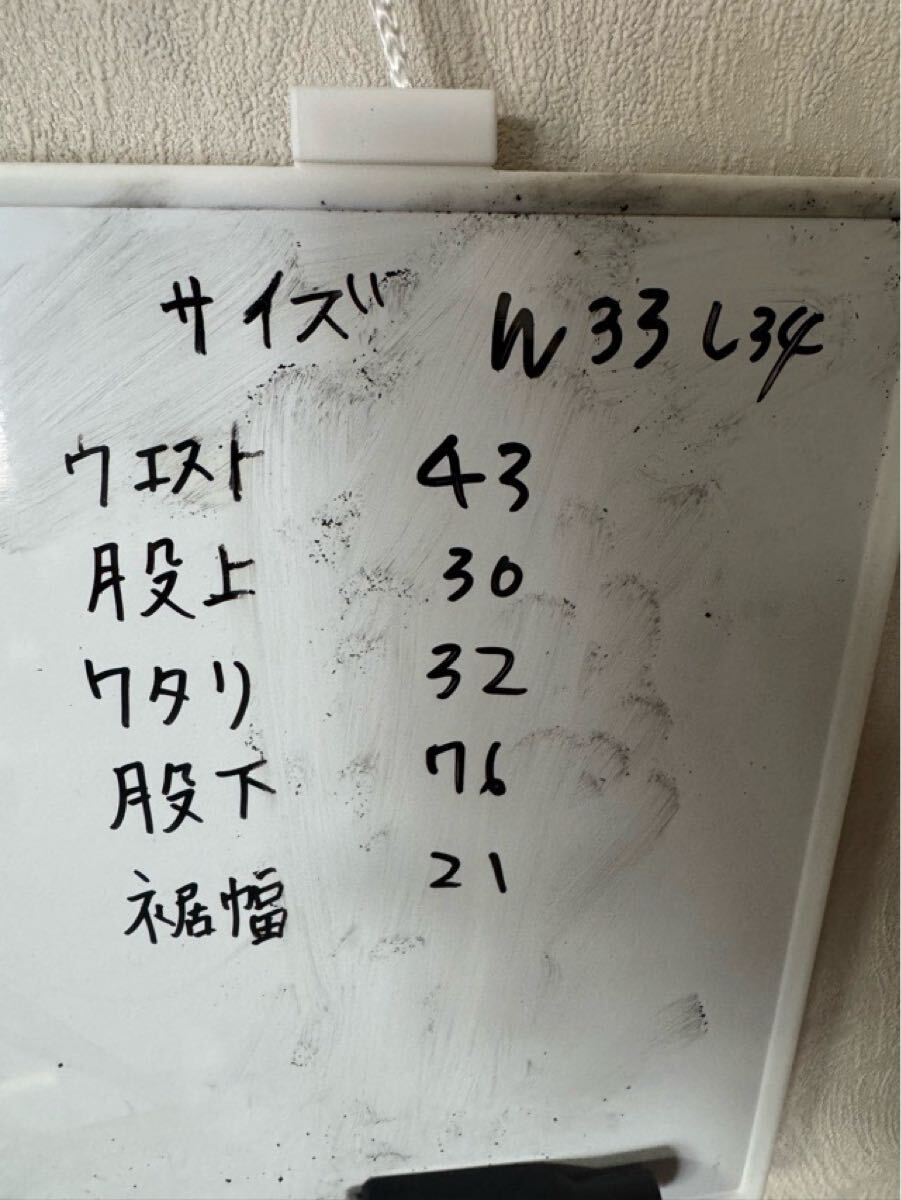 サイズ W33 L34
ウエスト 43
股上 30
ワタリ 32
股下 76
裾幅 21